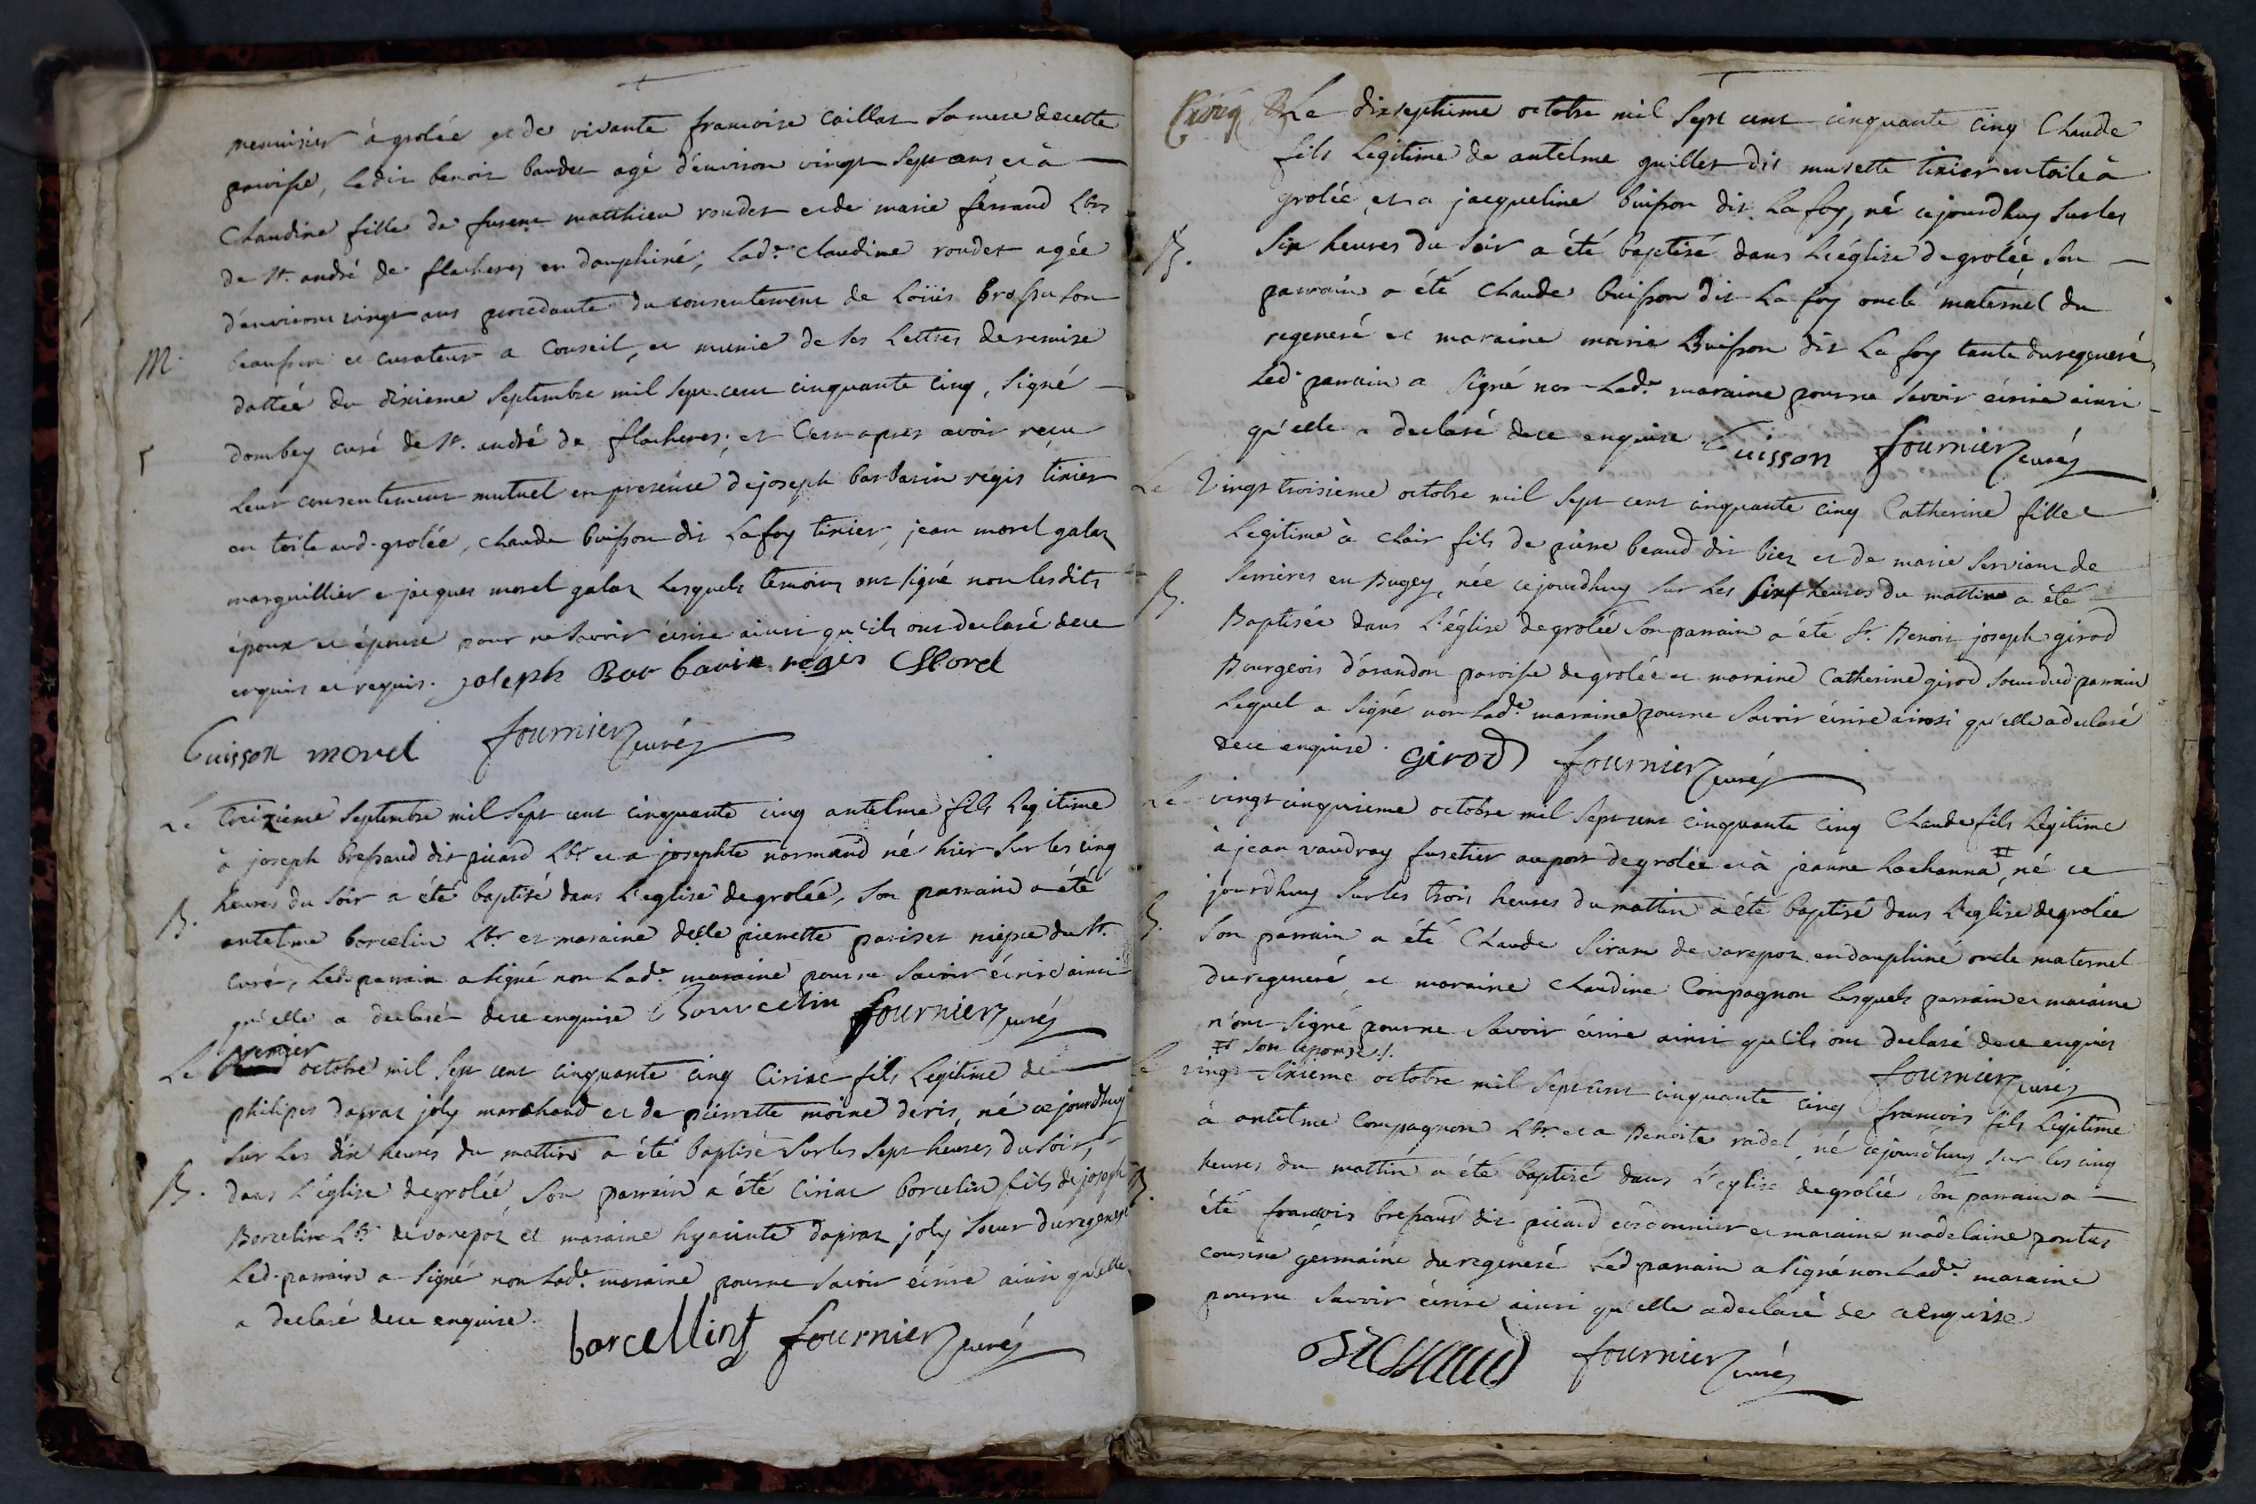 menuisier à grolée et de vivante francoise caillat sa mere decette
paroisse, ledit benoit baudet agé d'environ vingt sept ans et à
Claudine fille de fusent matthieu roudet et de marie ferrand Lbrs
de St. andré de flacheres en dauphiné, lade. Claudine roudet agée
d'environs vingt ans procedante du consentement de Loüis brossu son
beaupere et curateur a Conseil, et munie de ses lettres de remise
M.
dattée du dixieme septembre mil sept cent cinquante cinq, signé
dombey curé de St. andré de flacheres; et C'est apres avoir reçu
leur consentement mutuel en presence de joseph barbarin régis tixier
en toile aud. grolée, claude buisson dit Lafoy tixier, jean morel galaz
marguillier et jacques morel galaz lesquels temoins ont signé non lesdits
époux et épouse pour ne savoir écrire ainsi qu'ils ont declaré de ce
enquis et requis. joseph Bar barin reges Morel
buisson morel fournier curé
Le treizieme septembre mil sept cent cinquante cinq antelme fils legitime
à joseph bressaud dit picard Lbr. et a josephte normand né hier sur les cinq
heures du soir a été baptisé dans l'eglise de grolée, son parrain a été
B.
antelme borcelin Lbr. et maraine delle pierrette pariset niépce du Sr.
curé, led. parrain a signé non lade. maraine pour ne savoir écrire ainsi
qu'elle a declaré de ce enquise Bourcelin fournier curé
Le premier octobre mil sept cent cinquante cinq Ciriac fils legitime de
philipes dapraz joly marchand et de pierrette moine deris, né ce jourdhuy
sur les dix heures du mattin a été baptisé sur les sept heures du soir,
B.
dans l'église de grolée son parrain a été Ciriac borcelin fils de joseph
Borcelin Lbr. de varepoz et maraine hyacinte dapraz joly soeur du regeneré
led. parrain a signé non lade. maraine pour ne savoir écrire ainsi qu'elle
a declaré de ce enquise.
borcellin fournier curé
Cinq Le dixseptieme octobre mil sept cent cinquante cinq Claude
fils legitime de antelme guillet dit musette tixier en toile à
grolée et a jacqueline buisson dit Lafoy, né cejourdhuy sur les
B.
six heures du soir a été baptisé dans l'église de grolée, son
parrain a été Claude buisson dit La foy oncle maternel du
regeneré et maraine marie Buisson dit La foy tante du regeneré,
led. parrain a signé non lade. maraine pour ne savoir écrire ainsi
qu'elle a declaré de ce enquise buisson fournier curé
Le vingt troisieme octobre mil sept cent cinquante cinq Catherine fille
legitime à clair fils de pierre beaud dit biez et de marie servient de
serrières en Bugey, née cejourdhuy sur les six heures du mattin a été
B.
Baptisée dans l'église de grolée son parrain a été Sr. Benoit joseph girod
Bourgeois d'arandon paroisse de grolée et maraine Catherine girod soeur dud. parrain
lequel a signé non lade. maraine pour ne savoir écrire ainsi qu'elle a declaré
de ce enquise. Girod fournier curé
Le vingt cinquieme octobre mil sept cent cinquante cinq Claude fils legitime
à jean vaudray fusetier au port de grolée et à jeanne lachanna #, né ce
jourdhuy sur les trois heures du mattin a été baptisé dans l'église de grolée
B.
son parrain a été Claude siram de varepoz en dauphiné oncle maternel
du regeneré, et maraine claudine Compagnon lesquels parrain et maraine
n'ont signé pour ne savoir écrire ainsi qu'ils ont declaré de ce enquis
# son epouse ./. fournier curé
Le vingt sixieme octobre mil sept cent cinquante cinq francois fils legitime
à antelme Compagnon Lbr. et a Benoite radel, né cejourdhuy sur les cinq
heures du mattin a été baptisé dans l'eglise de grolée son parrain a
B.
été francois bressaud dit picard cordonnier et maraine madelaine pontus
cousine germaine du regeneré led. parrain a signé non lade. maraine
pour ne savoir écrire ainsi qu'elle a declaré de ce enquise
Bressaud fournier curé